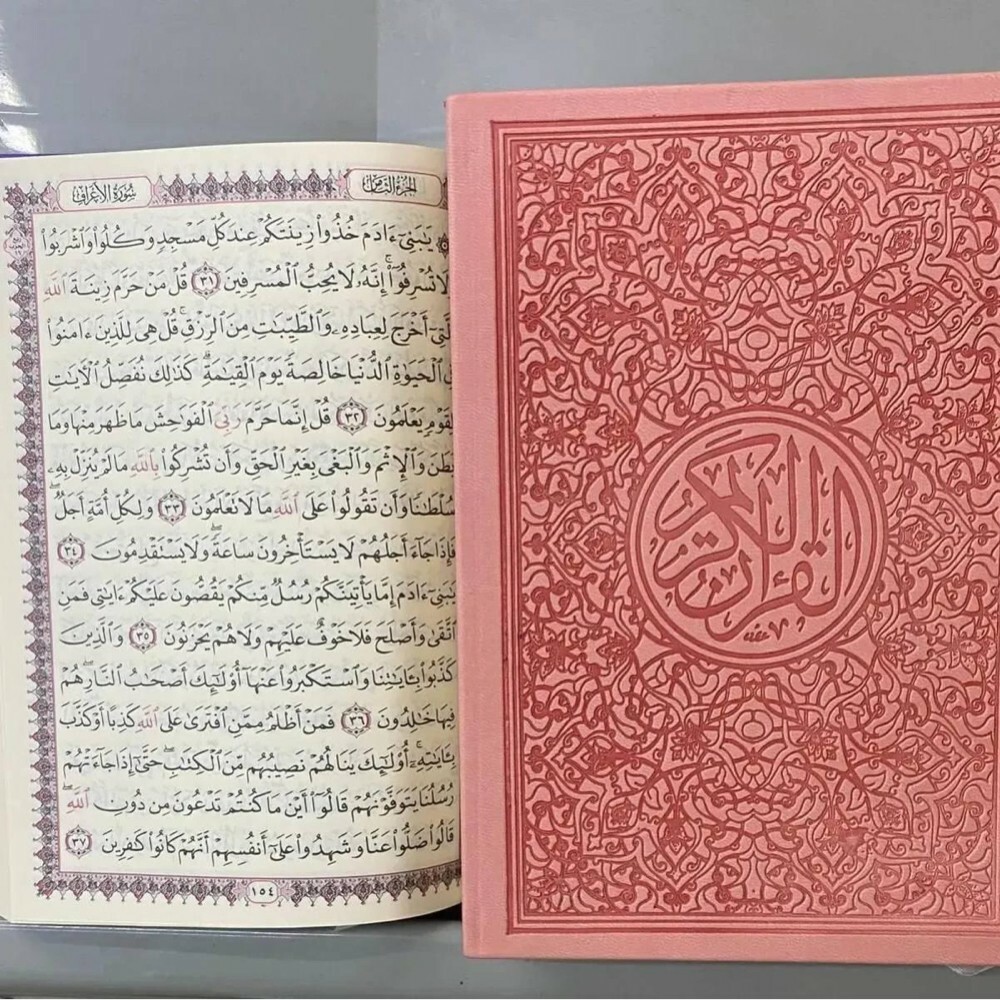 سُورَةُ الأَعْرَافِ
الجزء الثامن
يَٰبَنِيٓ ءَادَمَ خُذُواْ زِينَتَكُمْ عِندَ كُلِّ مَسْجِدٍ وَكُلُواْ وَٱشْرَبُواْ
لَا تُسْرِفُوٓاْ إِنَّهُۥ لَا يُحِبُّ ٱلْمُسْرِفِينَ ٣١ قُلْ مَنْ حَرَّمَ زِينَةَ ٱللَّهِ
ٱلَّتِيٓ أَخْرَجَ لِعِبَادِهِۦ وَٱلطَّيِّبَٰتِ مِنَ ٱلرِّزْقِۚ قُلْ هِيَ لِلَّذِينَ ءَامَنُواْ
فِي ٱلْحَيَوٰةِ ٱلدُّنْيَا خَالِصَةً يَوْمَ ٱلْقِيَٰمَةِۗ كَذَٰلِكَ نُفَصِّلُ ٱلْأٓيَٰتِ
لِقَوْمٍ يَعْلَمُونَ ٣٢ قُلْ إِنَّمَا حَرَّمَ رَبِّيَ ٱلْفَوَٰحِشَ مَا ظَهَرَ مِنْهَا وَمَا
بَطَنَ وَٱلْإِثْمَ وَٱلْبَغْيَ بِغَيْرِ ٱلْحَقِّ وَأَن تُشْرِكُواْ بِٱللَّهِ مَا لَمْ يُنَزِّلْ بِهِۦ
سُلْطَٰنًا وَأَن تَقُولُواْ عَلَى ٱللَّهِ مَا لَا تَعْلَمُونَ ٣٣ وَلِكُلِّ أُمَّةٍ أَجَلٌۖ
فَإِذَا جَآءَ أَجَلُهُمْ لَا يَسْتَأْخِرُونَ سَاعَةً وَلَا يَسْتَقْدِمُونَ ٣٤
يَٰبَنِيٓ ءَادَمَ إِمَّا يَأْتِيَنَّكُمْ رُسُلٌ مِّنكُمْ يَقُصُّونَ عَلَيْكُمْ ءَايَٰتِي فَمَنِ
ٱتَّقَىٰ وَأَصْلَحَ فَلَا خَوْفٌ عَلَيْهِمْ وَلَا هُمْ يَحْزَنُونَ ٣٥ وَٱلَّذِينَ
كَذَّبُواْ بِـَٔايَٰتِنَا وَٱسْتَكْبَرُواْ عَنْهَآ أُوْلَٰٓئِكَ أَصْحَٰبُ ٱلنَّارِۖ هُمْ
فِيهَا خَٰلِدُونَ ٣٦ فَمَنْ أَظْلَمُ مِمَّنِ ٱفْتَرَىٰ عَلَى ٱللَّهِ كَذِبًا أَوْ كَذَّبَ
بِـَٔايَٰتِهِۦٓۚ أُوْلَٰٓئِكَ يَنَالُهُمْ نَصِيبُهُم مِّنَ ٱلْكِتَٰبِۖ حَتَّىٰٓ إِذَا جَآءَتْهُمْ
رُسُلُنَا يَتَوَفَّوْنَهُمْ قَالُوٓاْ أَيْنَ مَا كُنتُمْ تَدْعُونَ مِن دُونِ ٱللَّهِۖ
قَالُواْ ضَلُّواْ عَنَّا وَشَهِدُواْ عَلَىٰٓ أَنفُسِهِمْ أَنَّهُمْ كَانُواْ كَٰفِرِينَ ٣٧
١٥٤
القرآن الكريم